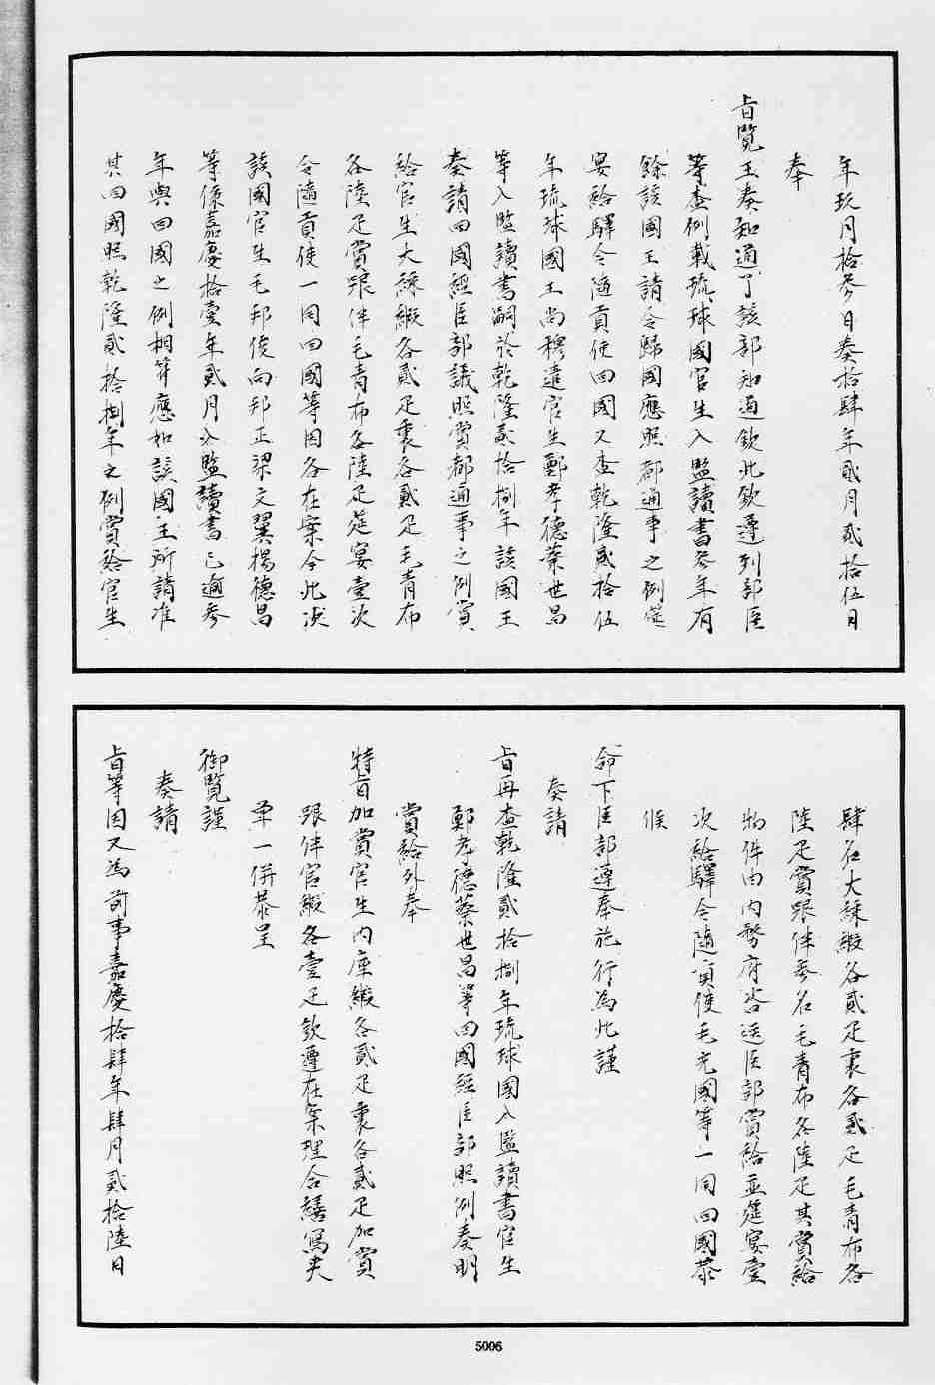 年玖月拾參日奏拾肆年貳月貳拾伍日
奉
旨覽王奏知道了該部知道欽此欽遵到部臣
等查例載琉球國官生入監讀書參年有
餘該國王請令歸國應照都通事之例筵
宴給驛令隨貢使回國又查乾隆貳拾伍
年琉球國王尚穆遣官生鄭孝德蔡世昌
等入監讀書嗣於乾隆貳拾捌年該國王
奏請回國經臣部議照賞都通事之例賞
給官生大綵緞各貳疋裏各貳疋毛青布
各陸疋賞跟伴毛青布各陸疋筵宴壹次
令隨貢使一同回國等因各在案今此次
該國官生毛邦俊向邦正梁文翼楊德昌
等係嘉慶拾壹年貳月入監讀書已逾參
年與回國之例相符應如該國王所請准
其回國照乾隆貳拾捌年之例賞給官生
肆名大綵緞各貳疋裏各貳疋毛青布各
陸疋賞跟伴參名毛青布各陸疋其賞給
物件由內務府咨送臣部賞給並筵宴壹
次給驛令隨貢使毛光國等一同回國恭
候
命下臣部遵奉施行為此謹
奏請
旨再查乾隆貳拾捌年琉球國入監讀書官生
鄭孝德蔡世昌等回國經臣部照例奏明
賞給外奉
特旨加賞官生內庫緞各貳疋裏各貳疋加賞
跟伴官緞各壹疋欽遵在案理合繕寫夾
單一併恭呈
御覽謹
奏請
旨等因又為前事嘉慶拾肆年肆月貳拾陸日
5006